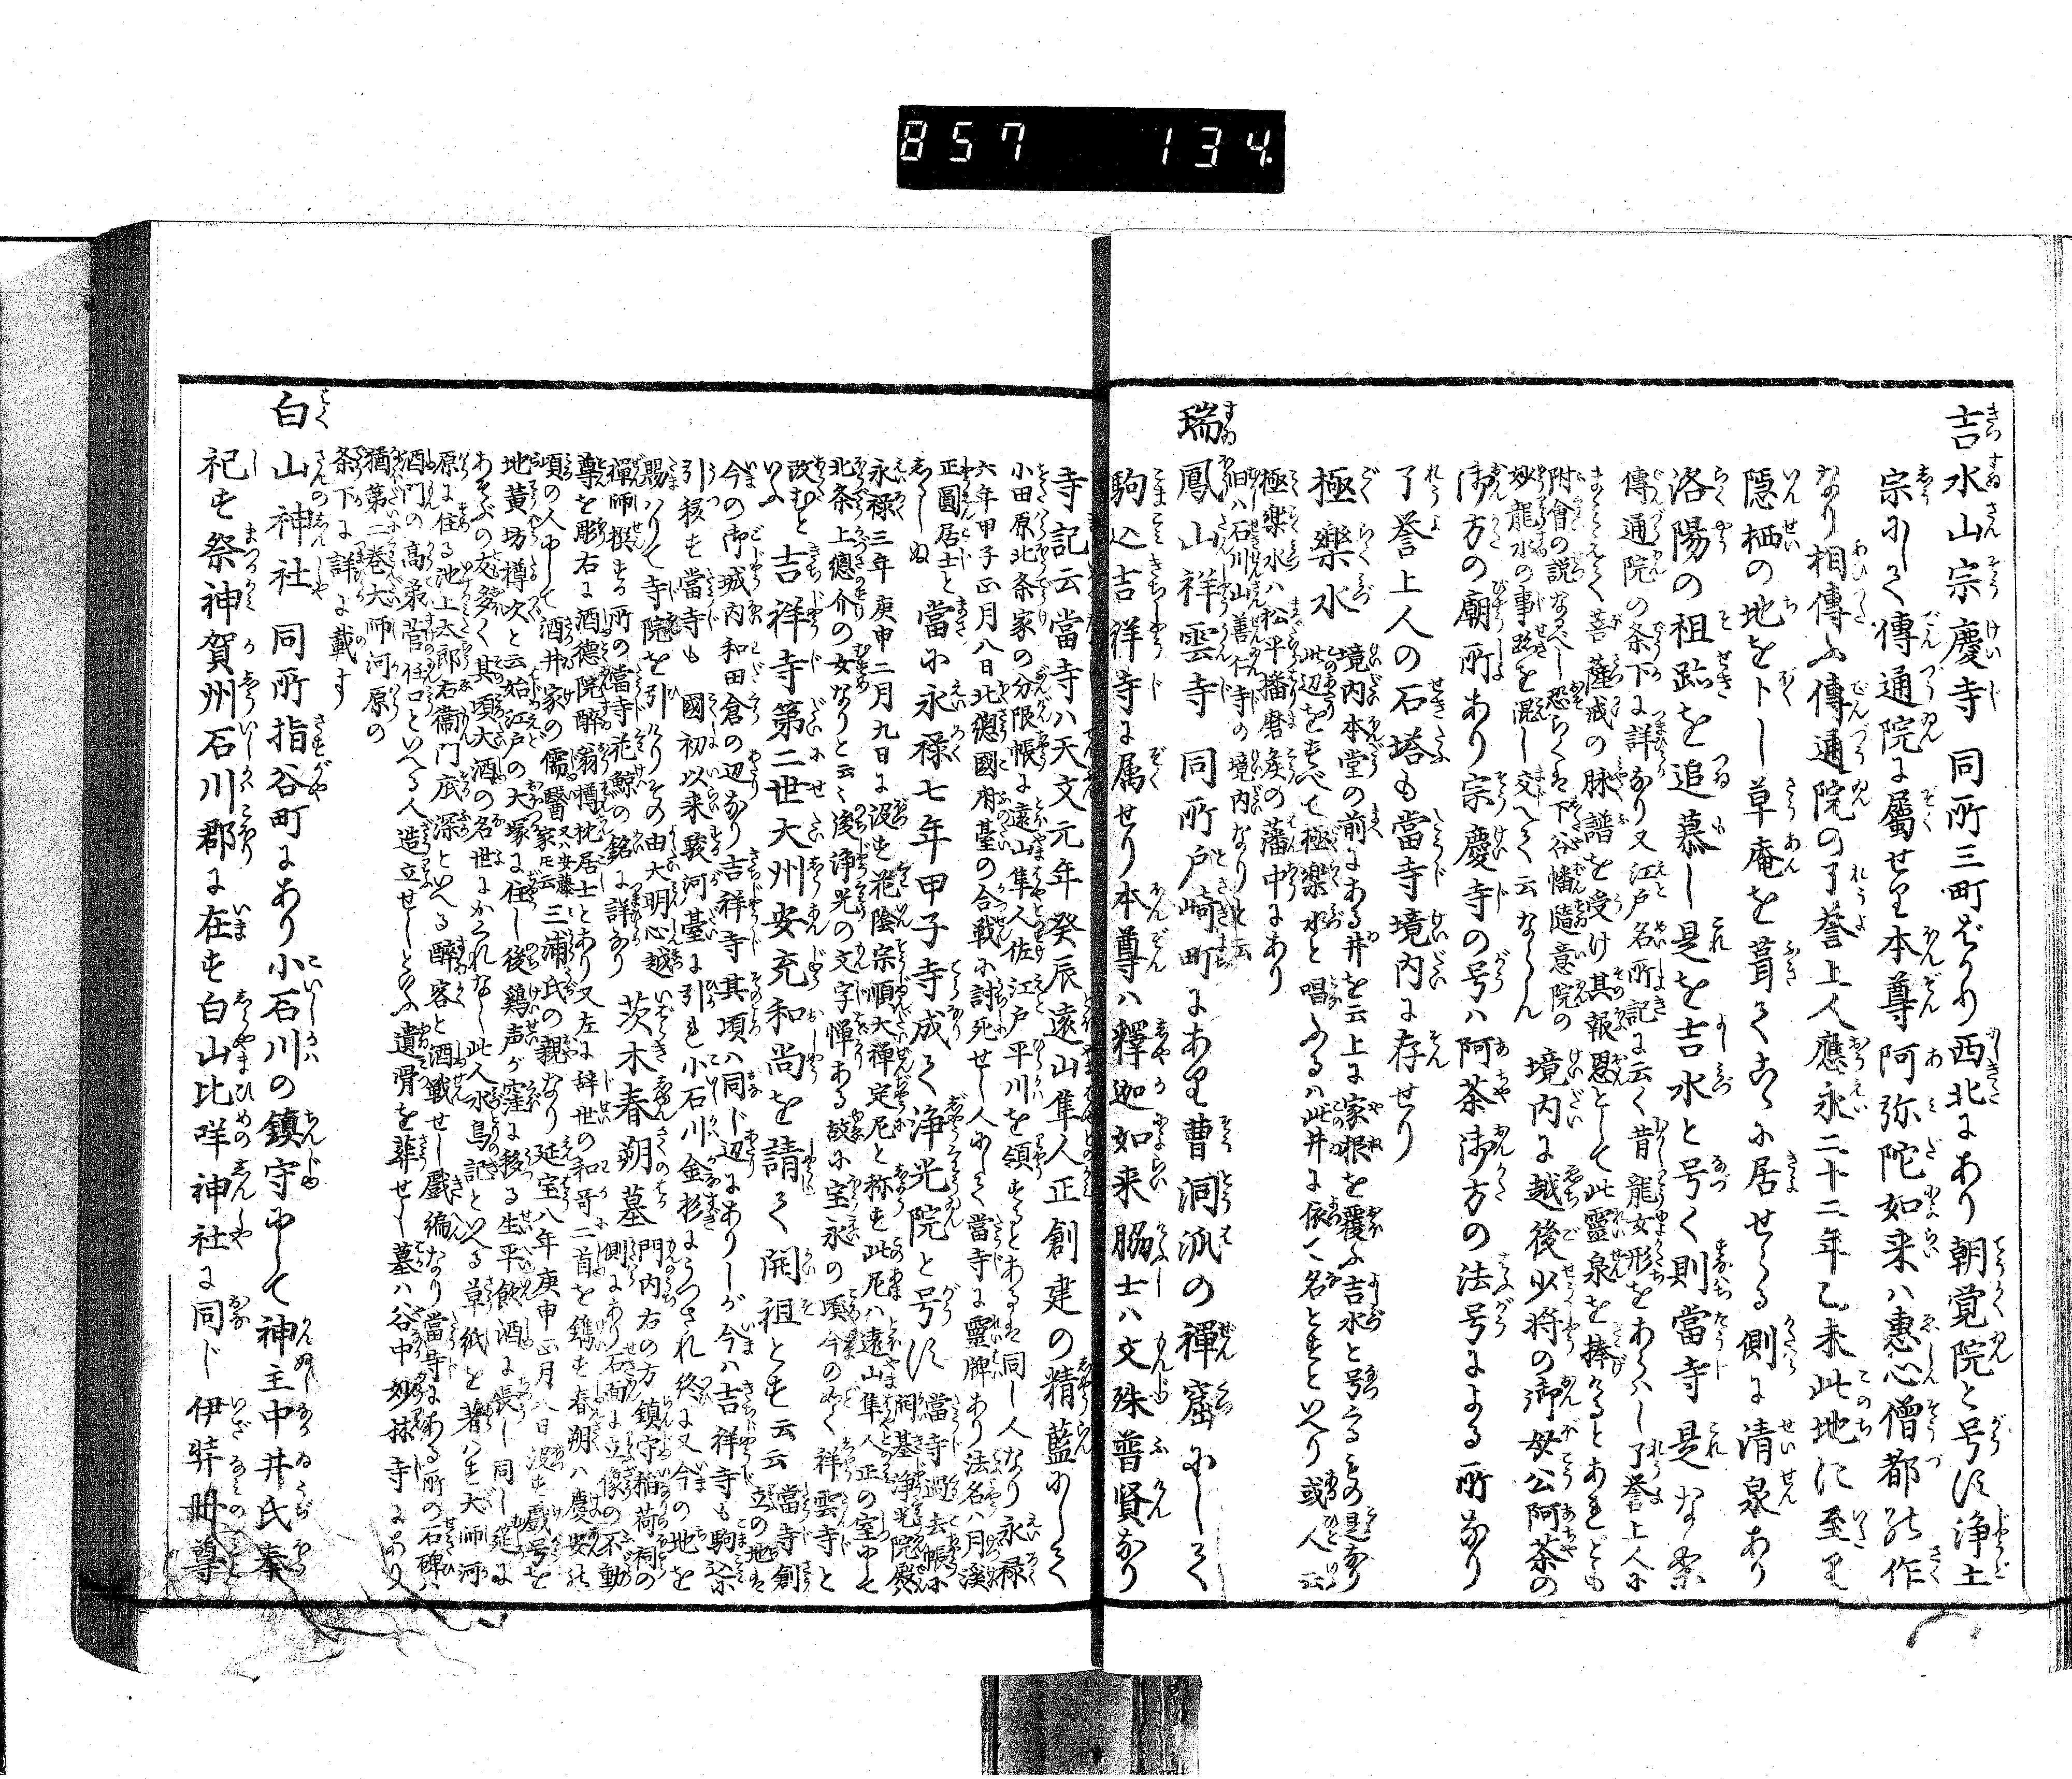 857 134
吉水山宗慶寺 同所三町ばかり西北にあり朝覚院と号す浄土
宗にして傳通院に属せり本尊阿弥陀如来ハ惠心僧都の作
なり相傳ふ傳通院の了誉上人應永二十二年乙未此地に至り
隠栖の地を卜し草庵を葺てこゝに居せらる側に清泉あり
洛陽の祖跡を追慕し是を吉水と号く則當寺是なり
傳通院の条下に詳なり又江戸名所記に云く昔龍女形をあらハし了誉上人に
まミえて菩薩戒の脉譜を受け其報恩として此靈泉を捧くるとあれども
附會の説なるべし恐らくは下谷幡隨意院の
妙龍水の事跡を混し交へて云ならん
境内に越後少将の御母公阿茶の
御方の廟所あり宗慶寺の号ハ阿茶御方の法号による所なり
了誉上人の石塔も當寺境内に存せり
極樂水 境内本堂の前にある井を云上に家根を覆ふ吉水と号るもの是なり
此辺をすべて極楽水と唱ふるハ此井に依て名とすといへり或人云
極樂水ハ松平播磨矦の藩中にあり
旧ハ石川山善仁寺の境内なりと云
瑞鳳山祥雲寺 同所戸崎町にあり曹洞派の禅窟にして
駒込吉祥寺に属せり本尊ハ釋迦如来脇士ハ文殊普賢なり
寺記云當寺ハ天文元年癸辰遠山隼人正創建の精藍にして
小田原北条家の分限帳に遠山隼人佐江戸平川を領するとあるは同し人なり永禄
六年甲子正月八日北總國府臺の合戦に討死せし人にして當寺に靈牌あり法名ハ月溪
正圓居士と
しるしぬ
當に永禄七年甲子寺成て浄光院と号す
當寺過去帳に
永禄三年庚申二月九日に没す花陰宗順大禅定尼と称す此尼ハ遠山隼人正の室にて
北条上總介の女なりと云々後浄光の文字憚ある故に宝永の頃今のごく祥雲寺と
改むと
いふ
吉祥寺第二世大州安充和尚を請て開祖とす云云
當寺創
立の地は
今の御城内和田倉の辺なり吉祥寺其頃ハ同じ辺にありしが今ハ吉祥寺も駒込に
引移す當寺も國初以来駿河臺に引れ小石川金杉にうつされ終に又今の地を
賜ハりて寺院を引けりその由大明心越
禅師撰する所の當寺花鯨の銘に詳なり
茨木春朔墓 門内右の方鎮守稲荷祠の
側にあり石面に立像の不動
尊を彫右に酒徳院醉翁樽枕居士とあり又左に辞世の和哥二首を鐫す春朔ハ慶安の
頃の人にして酒井家の儒醫又ハ安藤家とも云三浦氏の親なり延宝八年庚申正月八日没す戯号を
地黄坊樽次と云始江戸の大塚に住し後鶏声が窪に移る生平飲酒に長し同し道に
あそぶの友多く其頃大酒の名世にかくれなし此人水鳥記といへる草紙を著ハす大師河
原に住る池上太郎右衞門底深といへる醉客と酒戦せし戯編なり當寺にある所の石碑ハ
酒門の高弟菅任口といへる人造立せしとなり遺骨を葬せし墓ハ谷中妙林寺にあり
猶第二巻大師河原の
条下に詳に載す
白山神社 同所指谷町にあり小石川の鎮守にして神主中井氏奉
祀す祭神賀州石川郡に在す白山比咩神社に同じ伊弉冊尊